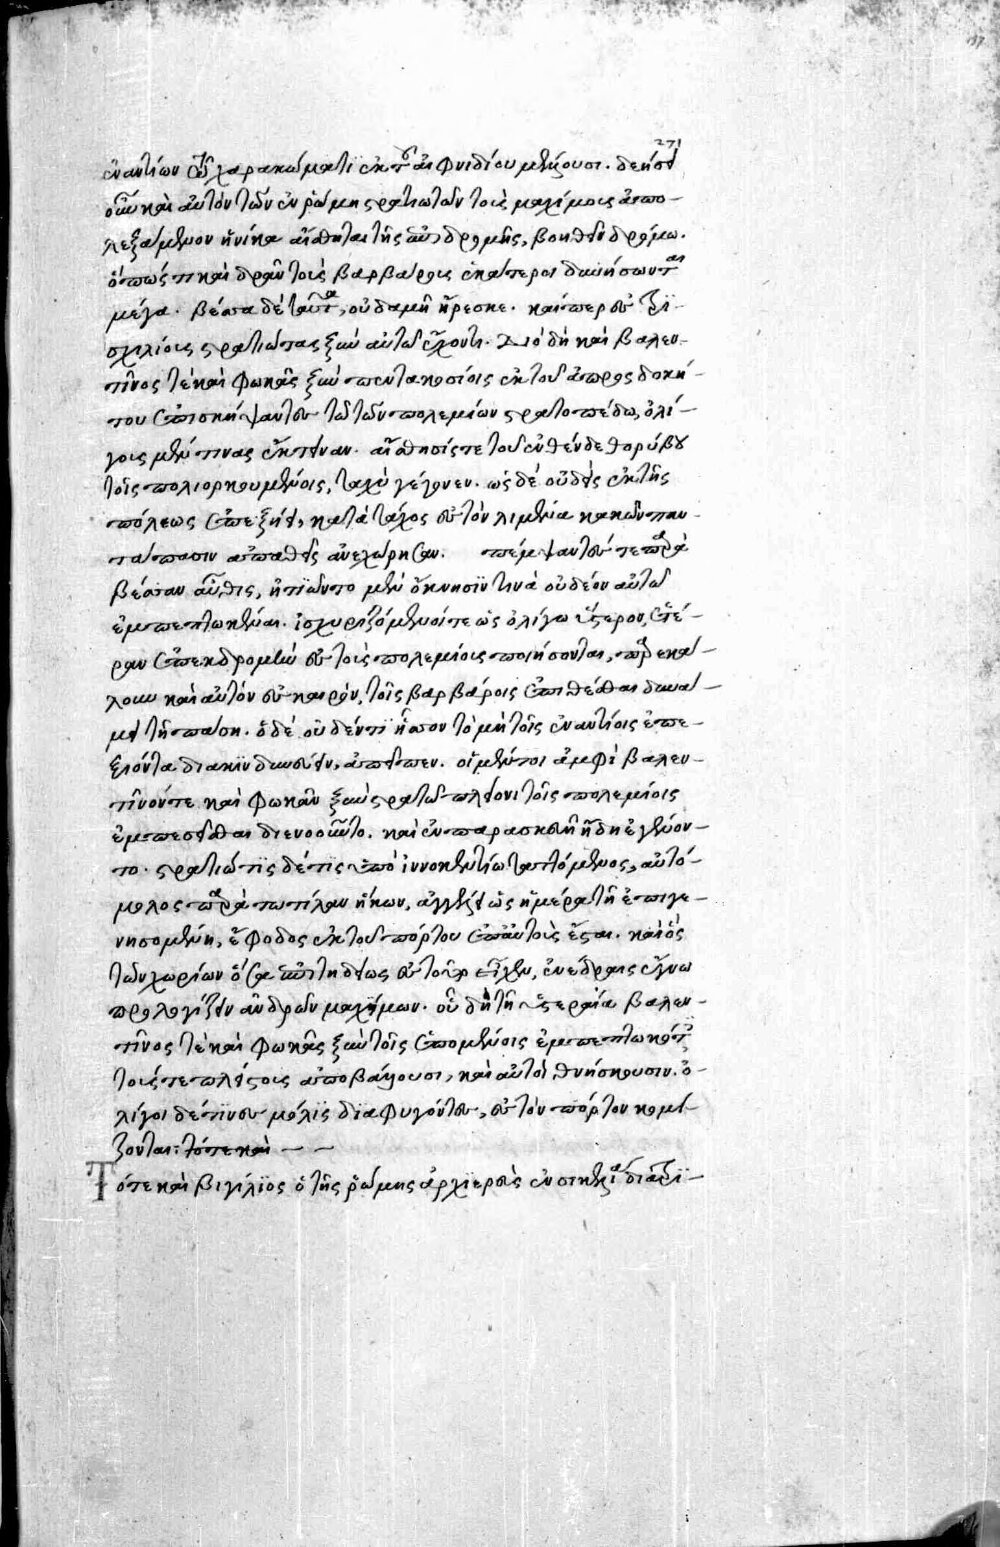 271
ἐναντίων τῷ χαρακώματι ἐκ τοῦ αἰφνιδίου μέλλουσι. δεήσει
οὖν καὶ αὐτὸν τῶν ἐν ῥώμη στρατιωτῶν τοὺς μαχίμους ἀπο-
λεξάμενον ἡνίκα αἴσθηται τῆς ἐπιδρομῆς, βοηθεῖν δρόμω.
ὅπως τι καὶ δρᾶν τοὺς βαρβάρους ἑκάτεροι δυνήσωνται
μέγα. βέσσα δὲ ταῦτα, οὐδαμῆ ἤρεσκε. καίπερ ἐς τρι-
σχιλίους στρατιώτας ξὺν αὐτῶ ἔχοντι. διὸ δὴ καὶ βαλεν-
τῖνος τὲ καὶ φωκᾶς ξὺν πεντακοσίοις ἐκ τοῦ ἀπροσδοκή-
του ἐπισκήψαντες τῶ τῶν πολεμίων στρατοπέδω, ὀλί-
γους μέν τινας ἔκτειναν. αἴσθησίς τε τοῦ ἐνθένδε θορύβου
τοῖς πολιορκουμένοις, ταχὺ γέγονεν. ὡς δὲ οὐδεὶς ἐκ τῆς
πόλεως ἐπεξήει, κατὰ τάχος ἐς τὸν λιμένα κακῶν παν-
τάπασιν ἀπαθεῖς ἀνεχώρησαν. πέμψαντές τε παρὰ
βέσσαν αὖθις, ἠτιῶντο μὲν ὄκνησίν τινὰ οὐ δέον αὐτῶ
ἐμπεπτωκέναι. ἰσχυριζόμενοί τε ὡς ὀλίγω ὕστερον, ἑτέ-
ραν ἐπεκδρομὴν ἐς τοὺς πολεμίους ποιήσονται, παρεκά-
λουν καὶ αὐτὸν ἐς καιρὸν, τοῖς βαρβάροις ἐπιθέσθαι δυνά-
μει τῆ πάση. ὁ δὲ οὐδέν τι ἧσσον τὸ μὴ τοῖς ἐναντίοις ἐπε-
ξιόντα διακινδυνεύειν, ἀπεῖπεν. οἱ μέντοι ἀμφὶ βαλεν-
τῖνόν τε καὶ φωκᾶν ξὺν στρατῶ πλείονι τοῖς πολεμίοις
ἐμπεσεῖσθαι διενοοῦντο. καὶ ἐν παρασκευῆ ἤδη ἐγένον-
το. στρατιώτης δέ τις ὑπὸ ἰννοκεντίω ταττόμενος, αὐτό-
μολος παρὰ τωτίλαν ἥκων, ἀγγέλλει ὡς ἡμέρα τῆ ἐπιγε-
νησομένη, ἔφοδος ἐκ τοῦ πόρτου ἐπ' αὐτοὺς ἔσται. καὶ ὃς
τῶν χωρίων ὅσα ἐπιτηδείως ἐς τοῦτο εἶχεν, ἐνέδραις ἔγνω
προλοχίζειν ἀνδρῶν μαχίμων. οὗ δὴ τῆ ὑστεραία βαλεν-
τῖνος τὲ καὶ φωκᾶς ξὺν τοῖς ἑπομένοις ἐμπεπτωκότες
τούς τε πλείστους ἀποβάλλουσι, καὶ αὐτοὶ θνήσκουσιν. ὀ-
λίγοι δέ τινες μόλις διαφυγόντες, ἐς τὸν πόρτον κομί-
ζονται: τότε καὶ — —
Τότε καὶ βιγίλιος ὁ τῆς ῥώμης ἀρχιερεὺς ἐν σικελία διατρί-